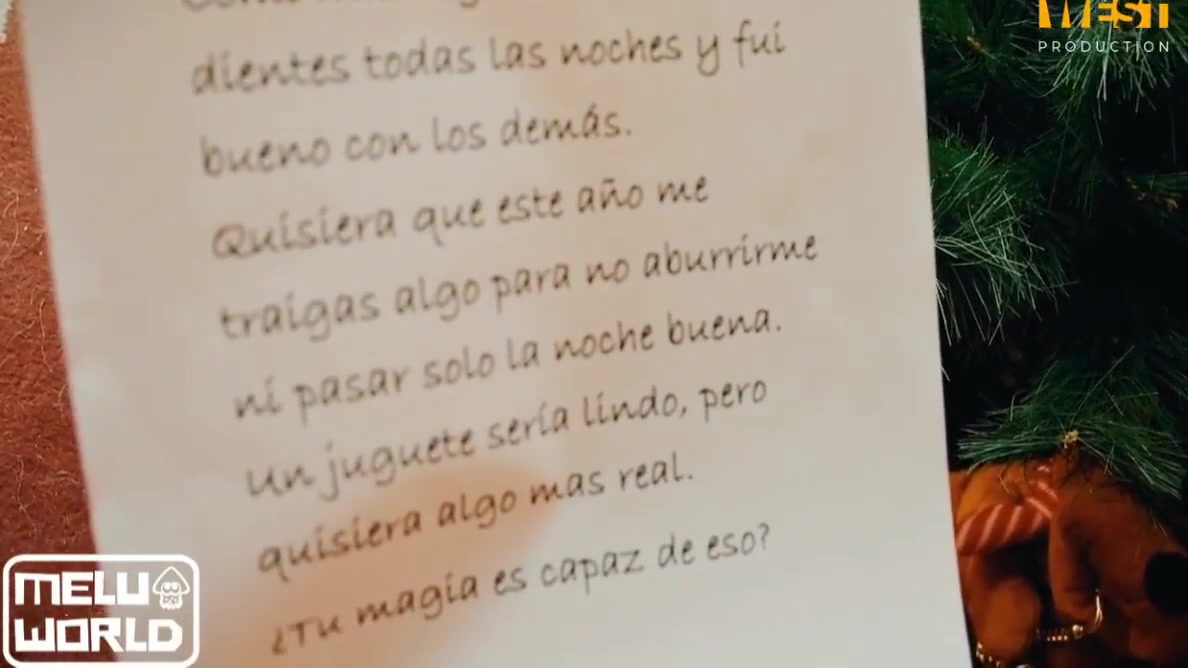 WEST
PRODUCTION
dientes todas las noches y fui
bueno con los demás.
Quisiera que este año me
traigas algo para no aburrirme
ni pasar solo la noche buena.
Un juguete sería lindo, pero
quisiera algo mas real.
¿Tu magia es capaz de eso?
MELU
WORLD